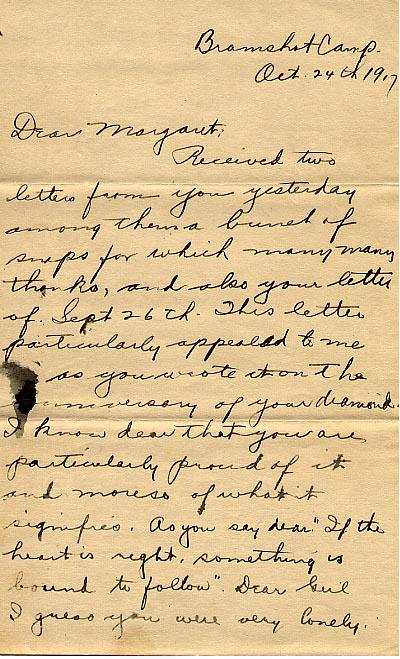 Bramshot Camp.
Oct. 24th 1917
Dear Margaret;
Received two
letters from you yesterday
among them a bunch of
snaps for which many many
thanks, and also your letter
of Sept 26th. This letter
particularly appealed to me
as you wrote it on the
anniversary of your diamond.
I know dear that you are
particularly proud of it
and moreso of what it
signifies. As you say dear "If the
heart is right, something is
bound to follow". Dear Girl
I guess you were very lonely.